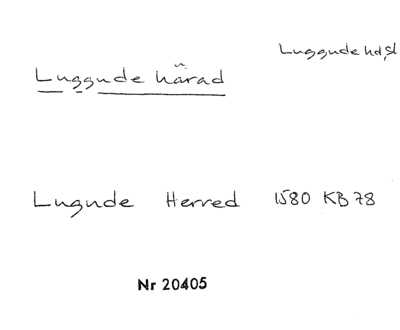 Luggude hd, Sk
Luggude härad
Lugude Herred 1580 KB 78
Nr 20405